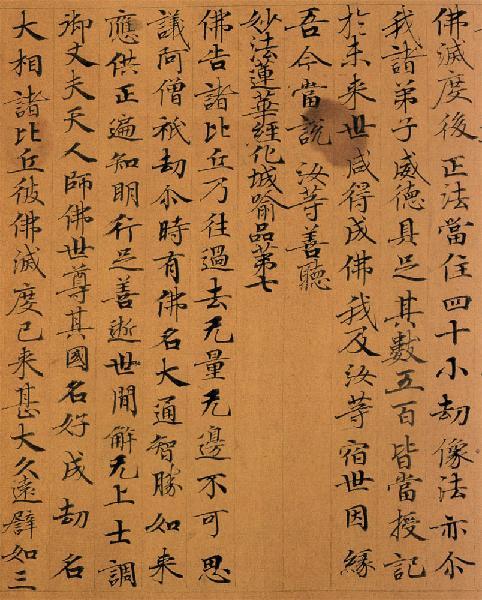 佛滅度後正法當住四十小劫像法亦尒
我諸弟子威德具足其數五百皆當授記
於未来世咸得成佛我及汝等宿世因緣
吾今當說汝等善聽
妙法蓮華經化城喻品第七
佛告諸比丘乃往過去无量无邊不可思
議阿僧祇劫尒時有佛名大通智勝如来
應供正遍知明行足善逝世間解无上士調
御丈夫天人師佛世尊其國名好成劫名
大相諸比丘彼佛滅度已来甚大久遠譬如三